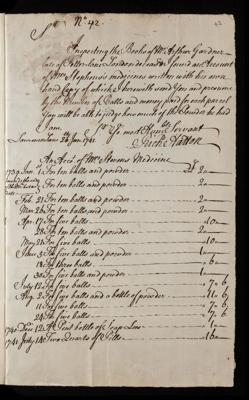 No. 42.
42
Sr
Inspecting the Books of Mr. Arthur Gardner
late of Fetter lane London deceas'd I found an Account
of Mrs. Stephens's medicines written with his own
hand Copy of which I herewith send you and presume
by the Number of Balls and money paid for each parcel
You will be able to judge how much of the Powder he had
I am
Sr Yo. most Humble Servant
Lawrence lane 26 Jan. 1741.
An Acct. of Mrs. Stevens Medicine
1739 Jan. 1. For ten balls and powder 2
For ten balls and powder 2
Feb. 21 For ten balls and powder 2
Mar. 26 For ten balls and powder 2
Apr. 17 For five balls 10
28 For ten balls and powder 2
May 26 For five balls 10
June 5 For five balls and powder 1
18 For three balls 6
30 For five balls and powder 1
July 12 For five balls 7 6
Aug. 2 For five balls and a bottle of powder 11 6
11 For five balls 7 6
24 For five balls 7 6
1740 Decr. 12 A Pint bottle of Soap Lees 1
1741 July 14 Two Quarts of Pills 16